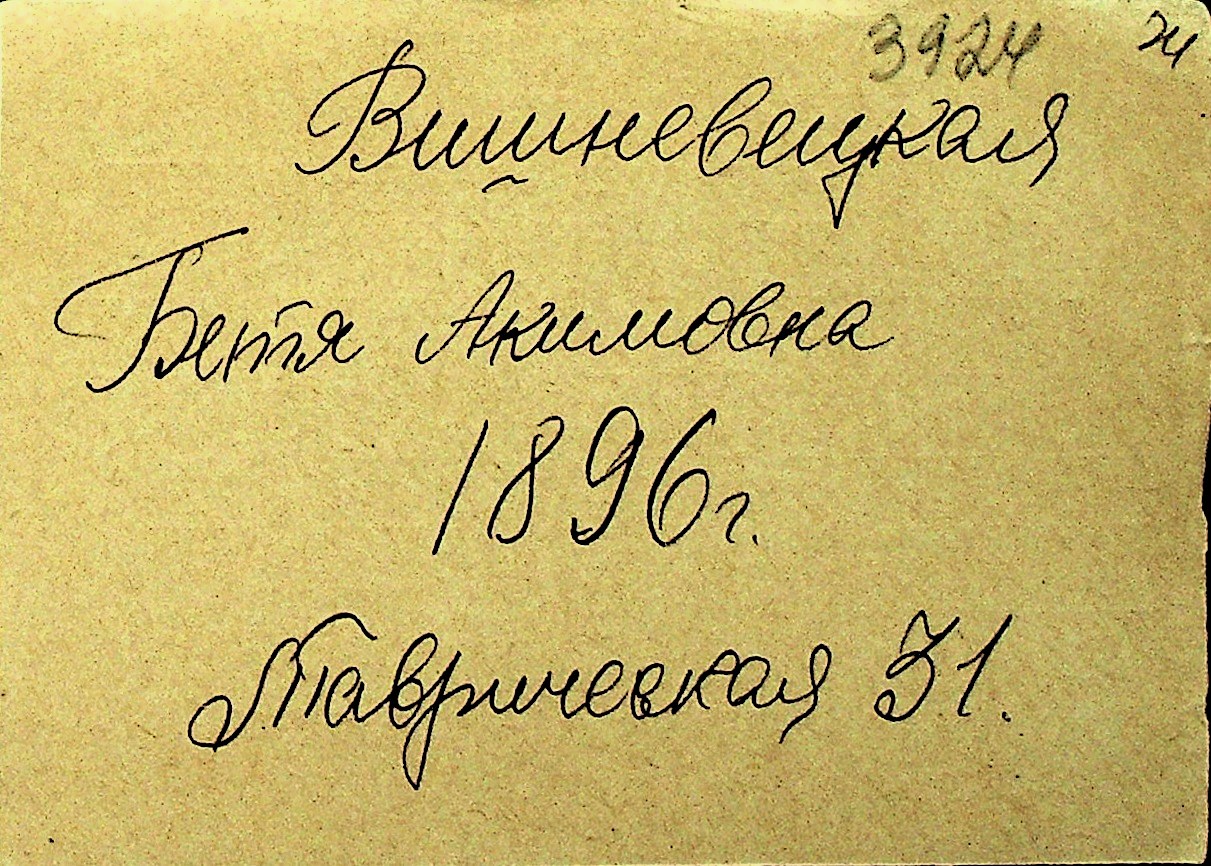 3924 24
Вишневецкая
Бетя Акимовна
1896 г.
Таврическая 31.